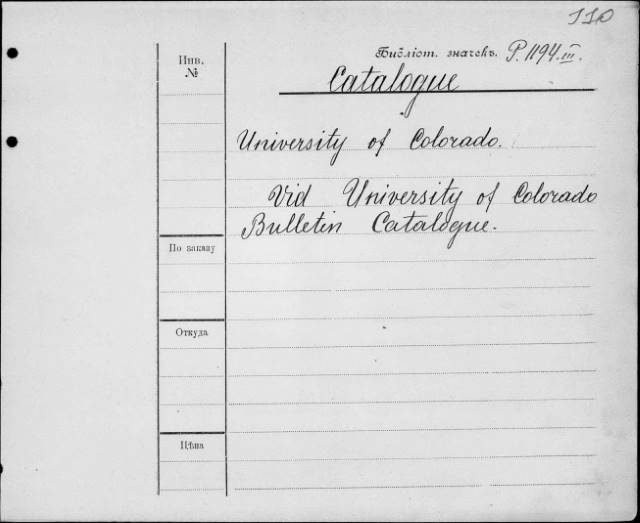 110
Библіот. значекъ. P. 1194.III.
Инв.
№
Catalogue
University of Colorado.
Vid University of Colorado
Bulletin Catalogue.
По заказу
Откуда
Цѣна